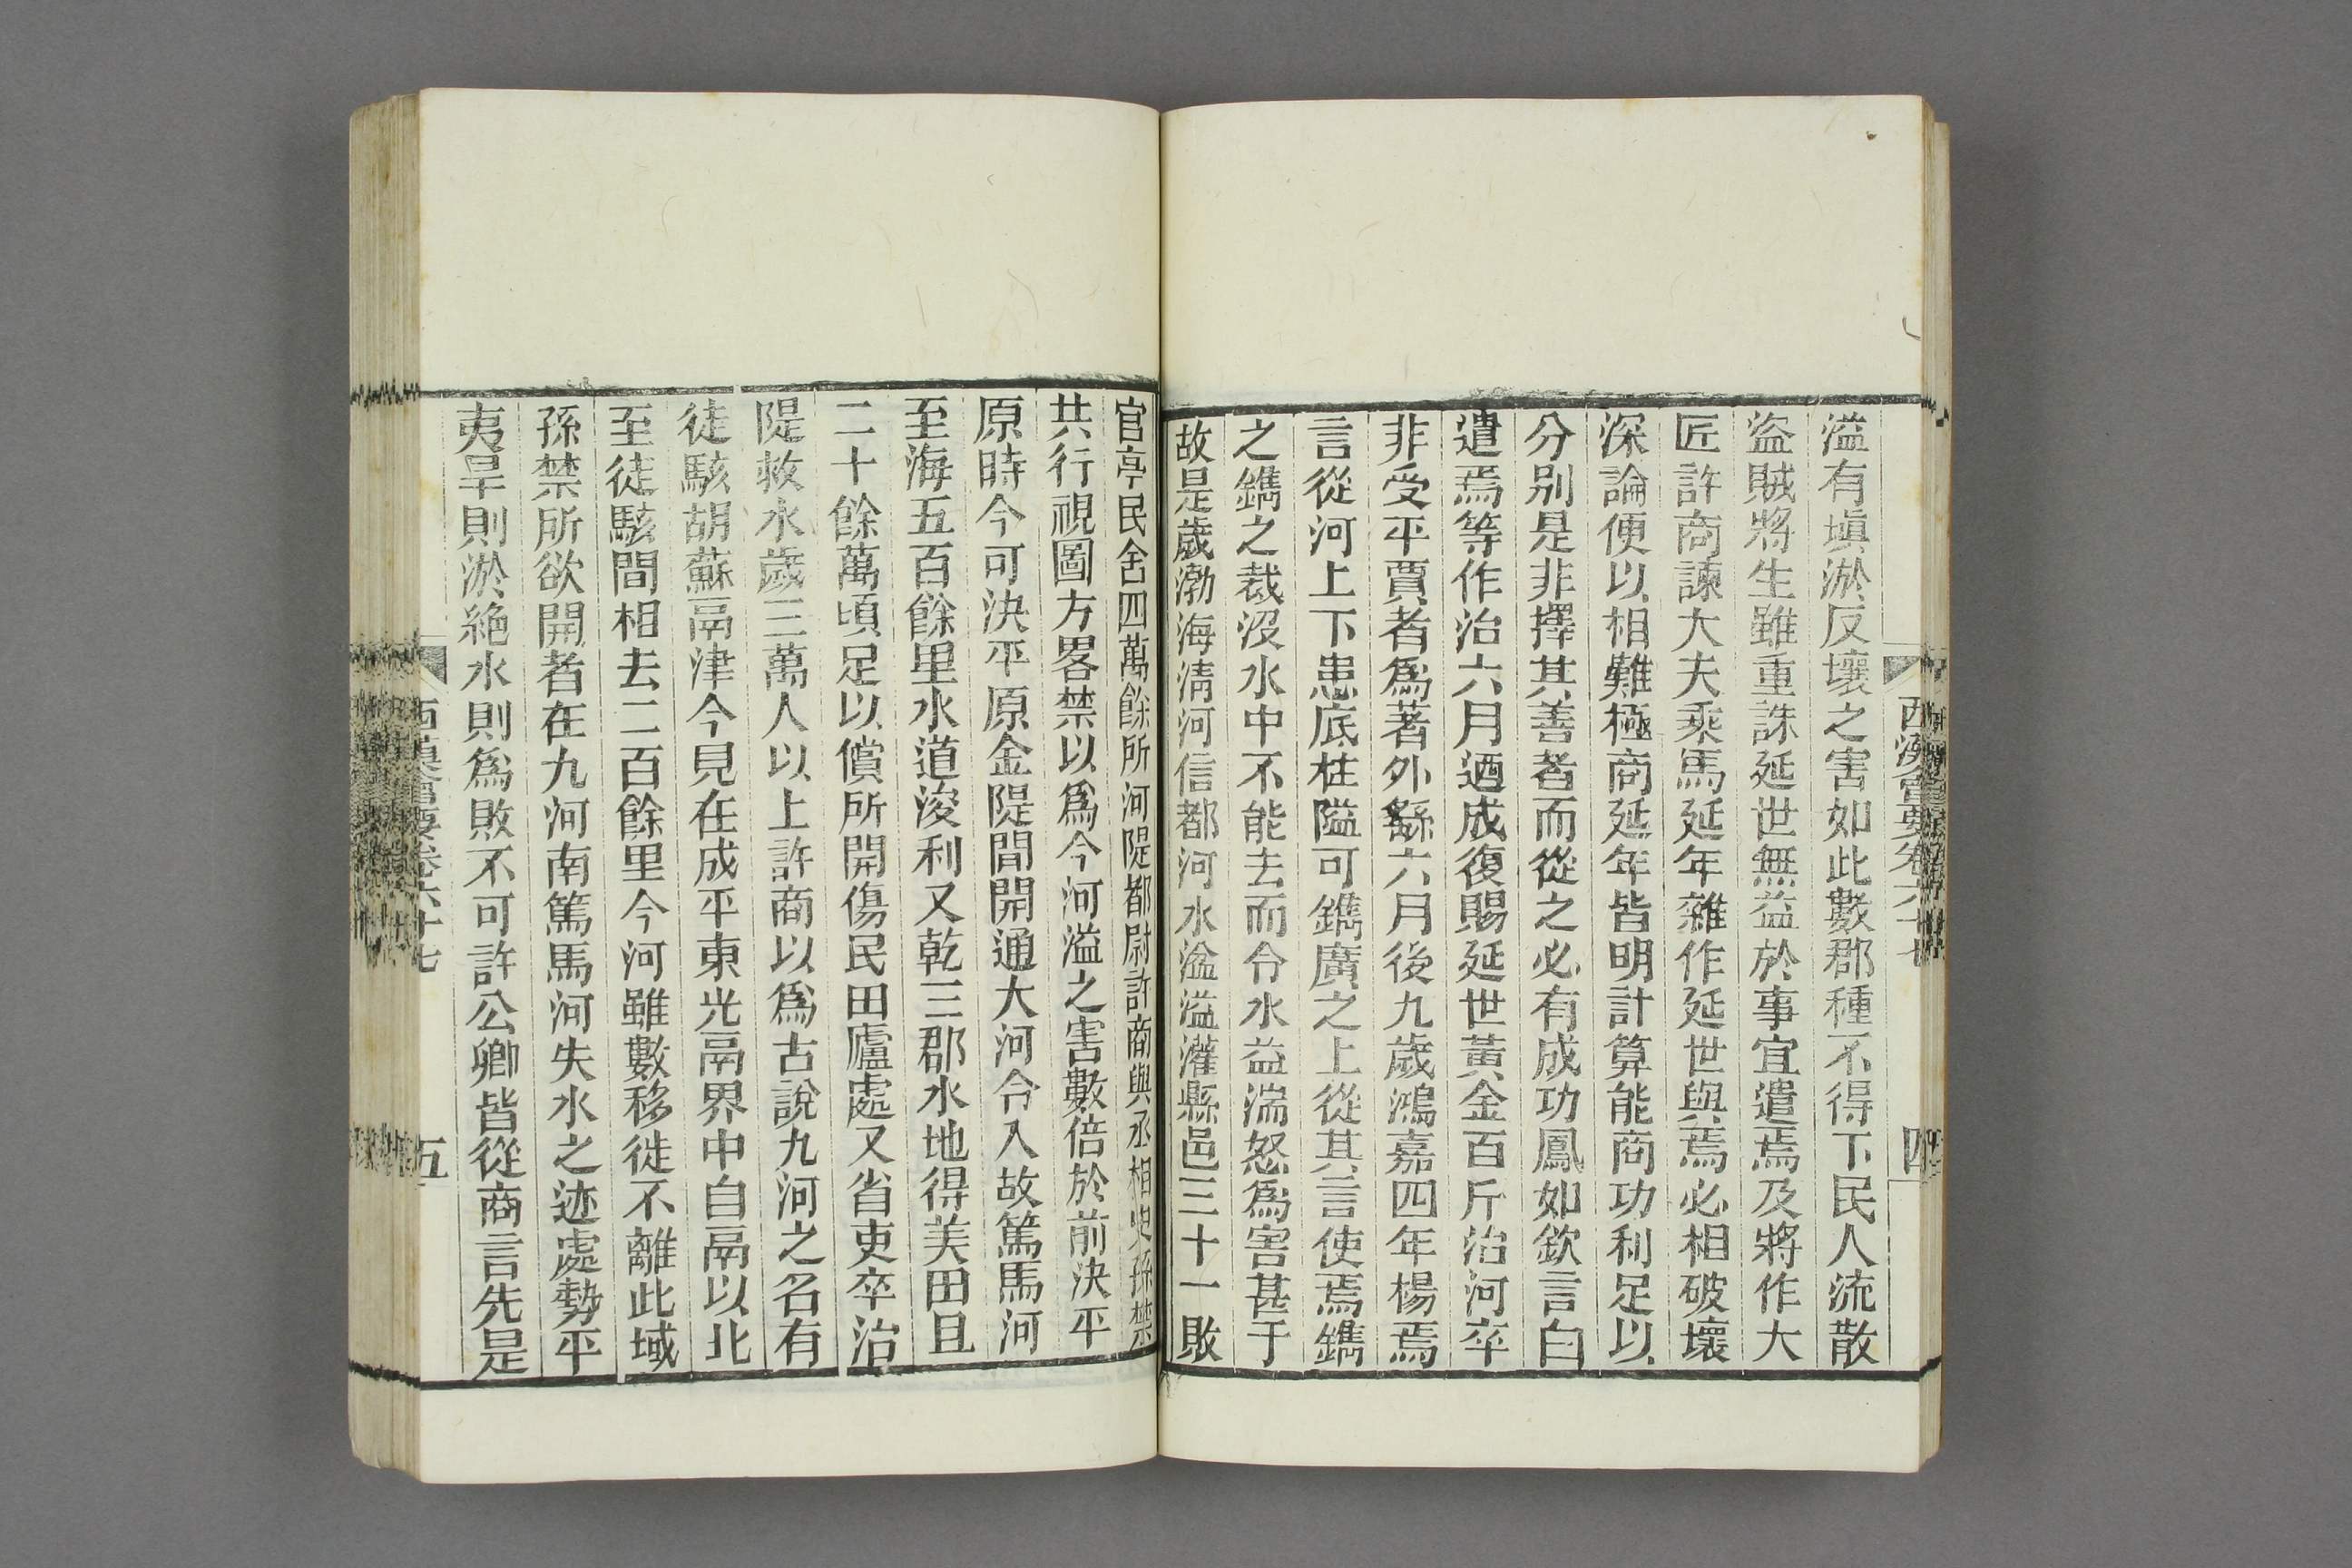 西漢會要卷六十七
四
溢有塡淤反壞之害如此數郡種不得下民人流散
盜賊將生雖重誅延世無益於事宜遣焉及將作大
匠許商諫大夫乘馬延年雜作延世與焉必相破壞
深論便以相難極商延年皆明計算能商功利足以
分别是非擇其善者而從之必有成功鳳如欽言白
遣焉等作治六月迺成復賜延世黃金百斤治河卒
非受平賈者爲著外繇六月後九歲鴻嘉四年楊焉
言從河上下患底柱隘可鐫廣之上從其言使焉鐫
之鐫之裁沒水中不能去而令水益湍怒爲害甚于
故是歲渤海淸河信都河水湓溢灌縣邑三十一敗
官亭民舍四萬餘所河隄都尉許商與丞相史孫禁
共行視圖方畧禁以爲今河溢之害數倍於前決平
原時今可決平原金隄間開通大河令入故篤馬河
至海五百餘里水道浚利又乾三郡水地得美田且
二十餘萬頃足以償所開傷民田廬處又省吏卒治
隄救水歲三萬人以上許商以爲古說九河之名有
徒駭胡蘇鬲津今見在成平東光鬲界中自鬲以北
至徒駭間相去二百餘里今河雖數移徙不離此域
孫禁所欲開者在九河南篤馬河失水之迹處勢平
夷旱則淤絶水則爲敗不可許公卿皆從商言先是
西漢會要卷六十七
五